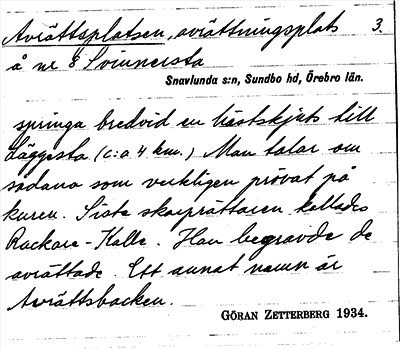 Avrättsplatsen, avrättningsplats 3.
å nr 8 Svinnersta
Snavlunda s:n, Sundbo hd, Örebro län.
springa bredvid en hästskjuts till
Läggesta (c:a 4 km.) Man talar om
sådana som verkligen prövat på
kuren. Siste skarprättaren kallades
Rackare-Kalle. Han begravde de
avrättade. Ett annat namn är
Avrättsbacken.
GÖRAN ZETTERBERG 1934.